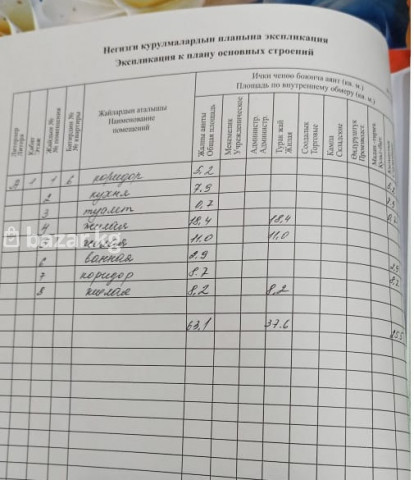 Негизги курулмалардын планына экспликация
Экспликация к плану основных строений
Ички ченөө боюнча аянт (кв. м.)
Площадь по внутреннему обмеру (кв. м.)
Литерлер
Литера
Кабат
Этаж
Жайдын №
№ помещения
Батирдин №
№ квартиры
Жайлардын аталышы
Наименование
помещений
Жалпы аянты
Общая площадь
Мекемелик
Учрежденческое
Администр.
Администр.
Турак жай
Жилая
Соодалык
Торговые
Кампа
Складские
Өндүрүштүк
Производст.
коридор 5,2
2 кухня 7,9
3 туалет 0,7
4 жилая 18,4 18,4
5 жилая 11,0 11,0
6 ванная
7 коридор
8 жилая 8,2 8,2
63,1 37.6
bazar.kg